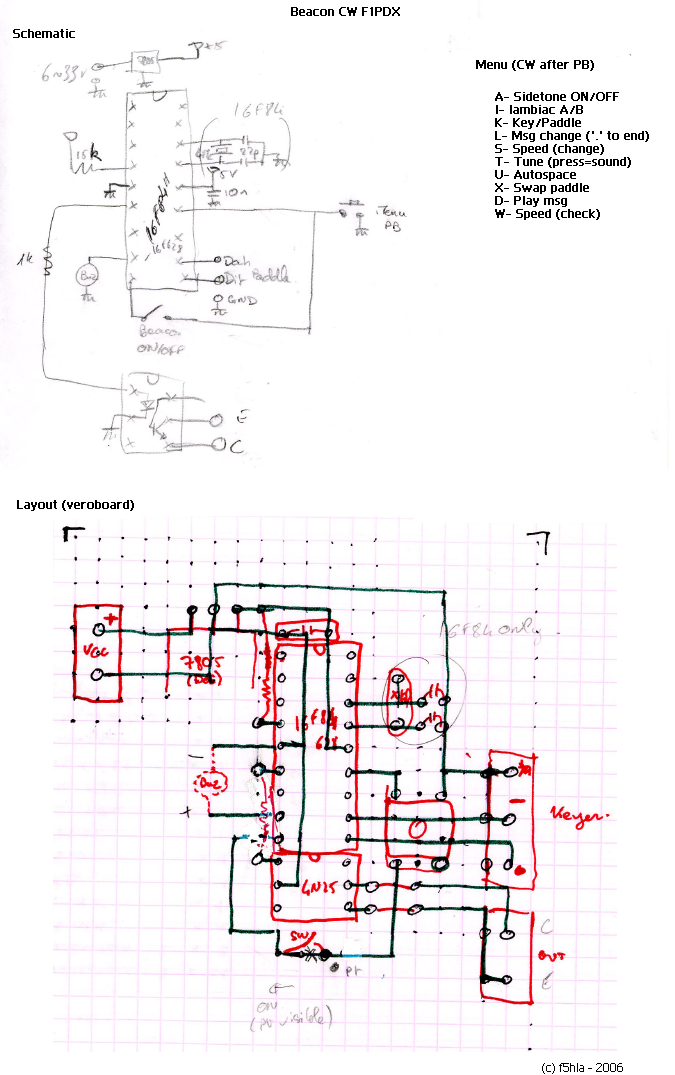 Beacon CW F1PDX
Schematic
+5
7805
6~33V
Menu (CW after PB)
A- Sidetone ON/OFF
I- Iambiac A/B
K- Key/Paddle
L- Msg change ('.' to end)
S- Speed (change)
T- Tune (press=sound)
U- Autospace
X- Swap paddle
D- Play msg
W- Speed (check)
16F84
15k
22p
5V
10n
16F84
16F628
Menu
PB
1k
Buz
Dah
Dit Paddle
GND
Beacon
ON/OFF
E
C
Layout (veroboard)
+
Vcc
7805
16F84 only
16F84
628
-
Buz
+
Keyer
4N25
SW
C
OUT
E
ON
(pt visible)
(c) f5hla - 2006